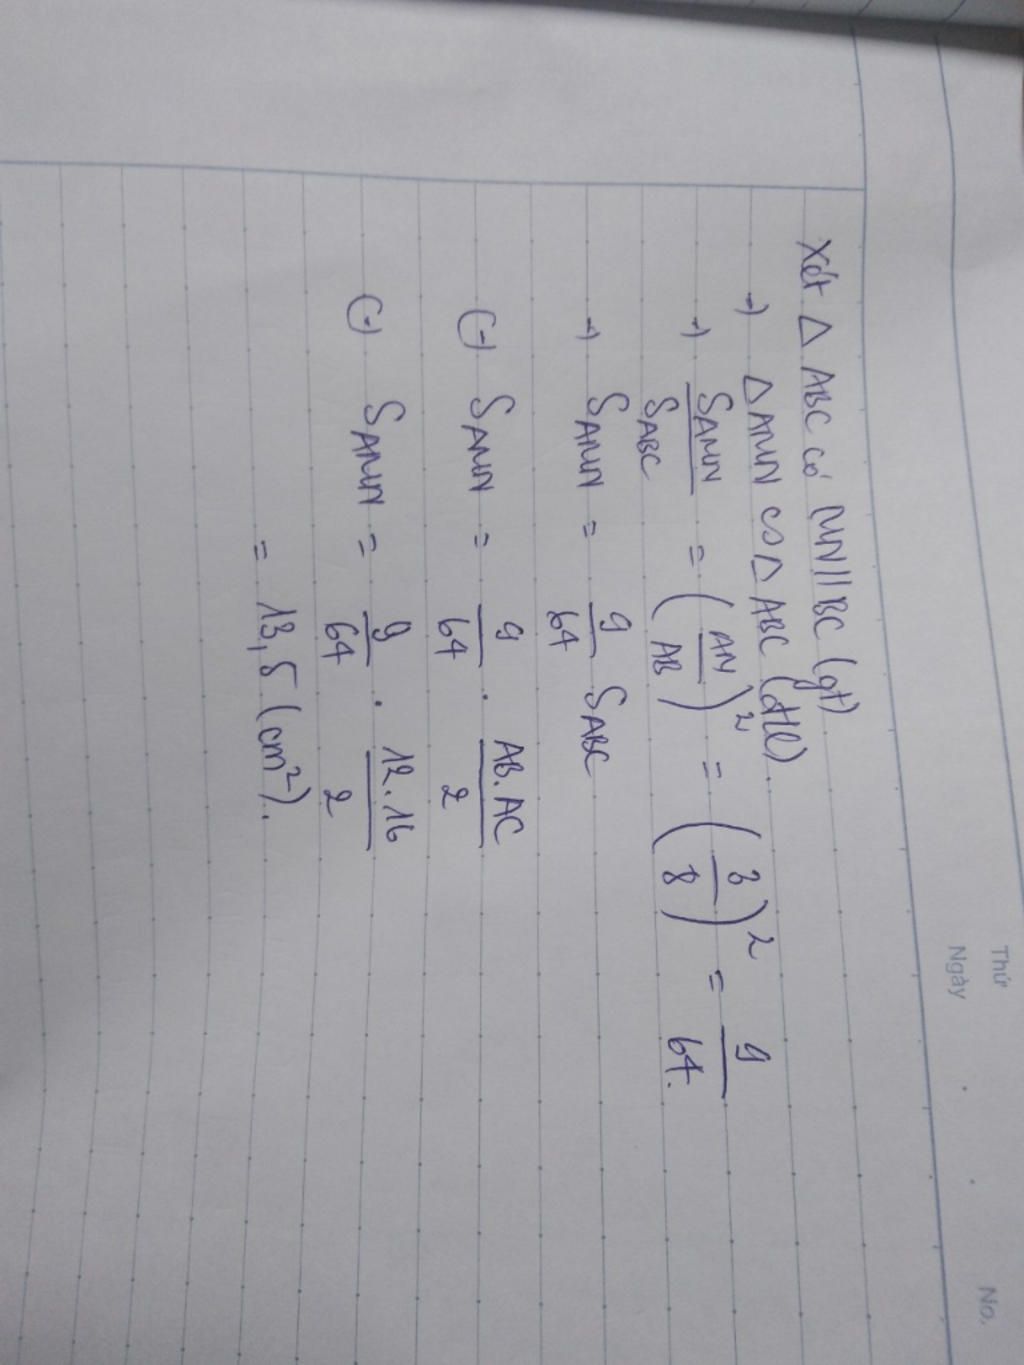 Thứ
Ngày
No.
Xét Δ ABC có MN//BC (gt)
→ ΔAMN ∽ Δ ABC (đlí).
→ S_AMN / S_ABC = (AN/AB)² = (3/8)² = 9/64.
→ S_AMN = 9/64 S_ABC
(→) S_AMN = 9/64 . AB.AC/2
(→) S_AMN = 9/64 . 12.16/2
= 13,5 (cm²).